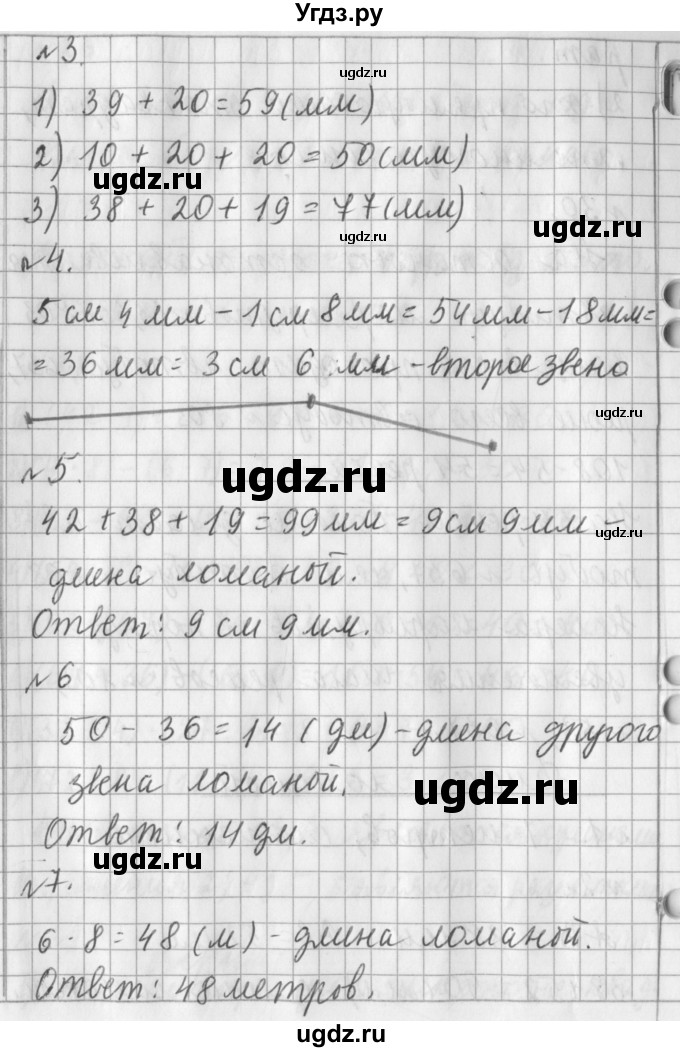 Угдз.ру
№3.
ugdz.ru
1) 39 + 20 = 59 (мм)
2) 10 + 20 + 20 = 50 (мм)
ugdz.ru
3) 38 + 20 + 19 = 77 (мм)
ugdz.ru
ugdz.ru
№4.
5 см 4 мм – 1 см 8 мм = 54 мм – 18 мм =
= 36 мм = 3 см 6 мм – второе звено
ugdz.ru
ugdz.ru
№5.
42 + 38 + 19 = 99 мм = 9 см 9 мм –
ugdz.ru
длина ломаной.
Ответ: 9 см 9 мм.
ugdz.ru
№6
50 – 36 = 14 (дм) – длина другого
звена ломаной.
ugdz.ru
Ответ: 14 дм.
ugdz.ru
№7.
6 · 8 = 48 (м) – длина ломаной.
Ответ: 48 метров.
ugdz.ru
ugdz.ru